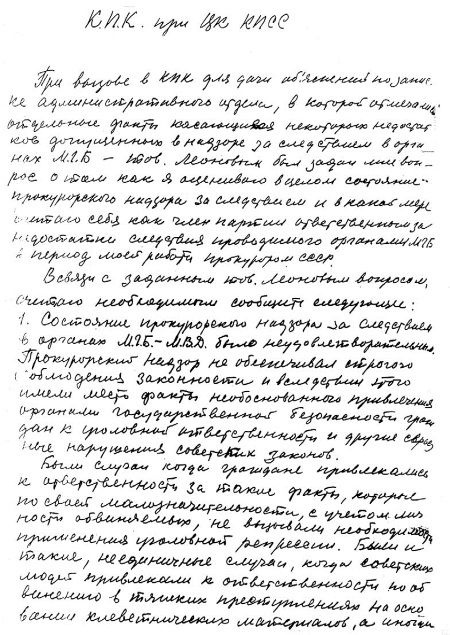 К.П.К. при ЦК КПСС
При вызове в КПК для дачи об'яснения по запис-
ке административного отдела, в которой отмечались
отдельные факты касающиеся некоторых недостат
ков допущенных в надзоре за следствием в орга-
нах МГБ – тов. Леоновым был задан мне воп-
рос о том как я оцениваю в целом состояние
прокурорского надзора за следствием и в какой мере
считаю себя как член партии ответственным за
недостатки следствия проводимого органами МГБ
в период моей работы прокурором СССР.
В связи с заданным тов. Леоновым вопросом,
считаю необходимым сообщить следующее:
1. Состояние прокурорского надзора за следствием
в органах МГБ–МВД было неудовлетворительным.
Прокурорский надзор не обеспечивал строгого
соблюдения законности и вследствии этого
имели место факты необоснованного привлечения
органами государственной безопасности граж
дан к уголовной ответственности и другие
ные нарушения советских законов.
Были случаи когда граждане привлекались
к ответственности за такие факты, которые
по своей малозначительности, с учетом лич
ности обвиняемых, не вызывали необходимости
применения уголовной репрессии. Были и
такие, неединичные случаи, когда советских
людей привлекали к ответственности по об
винению в тяжких преступлениях на осно
вании клеветнических материалов, а иногда